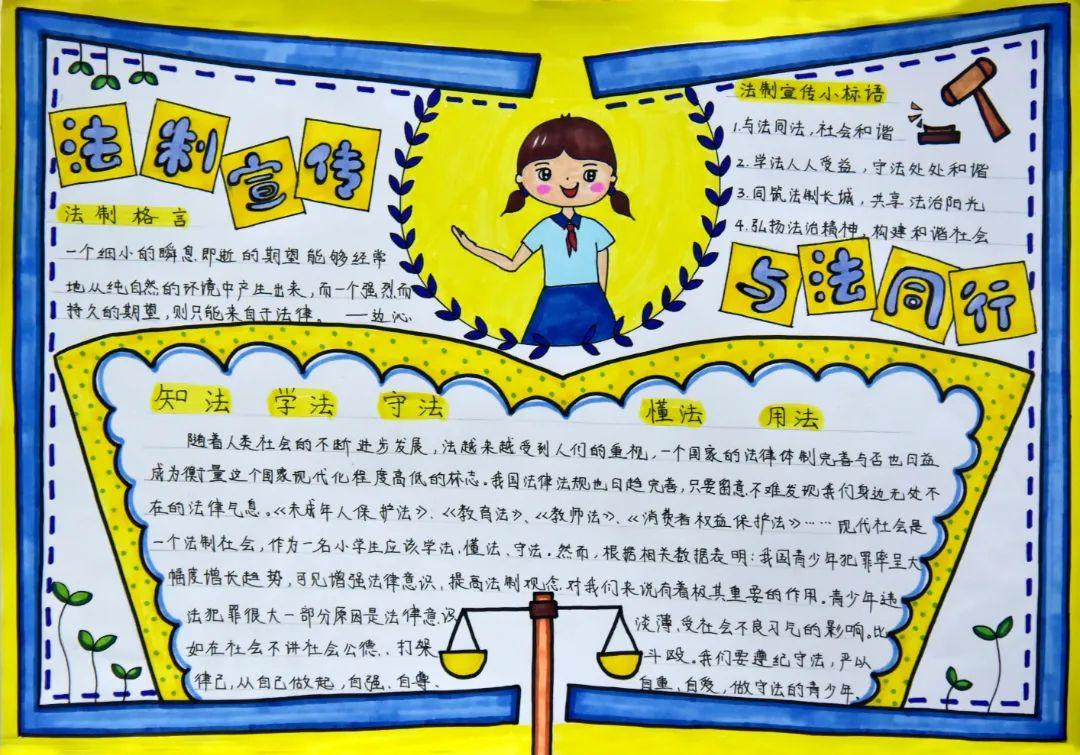 法制宣传
法制格言
一个细小的瞬息即逝的期望能够经常
地从纯自然的环境中产生出来,而一个强烈而
持久的期望,则只能来自于法律。 ——边沁
法制宣传小标语
1.与法同法,社会和谐
2.学法人人受益,守法处处和谐
3.同筑法制长城,共享法治阳光
4.弘扬法治精神,构建和谐社会
与法同行
知法 学法 守法 懂法 用法
随着人类社会的不断进步发展,法越来越受到人们的重视,一个国家的法律体制完善与否也日益
成为衡量这个国家现代化程度高低的标志。我国法律法规也日趋完善,只要留意不难发现我们身边无处不
在的法律气息。《未成年人保护法》、《教育法》、《教师法》、《消费者权益保护法》……现代社会是
一个法制社会,作为一名小学生应该学法、懂法、守法。然而,根据相关数据表明:我国青少年犯罪率呈大
幅度增长趋势,可见增强法律意识,提高法制观念对我们来说有着极其重要的作用。青少年违
法犯罪很大一部分原因是法律意识淡薄,受社会不良习气的影响。比
如在社会不讲社会公德、打架斗殴。我们要遵纪守法,严以
律己,从自己做起,自强、自尊、自重、自爱,做守法的青少年。